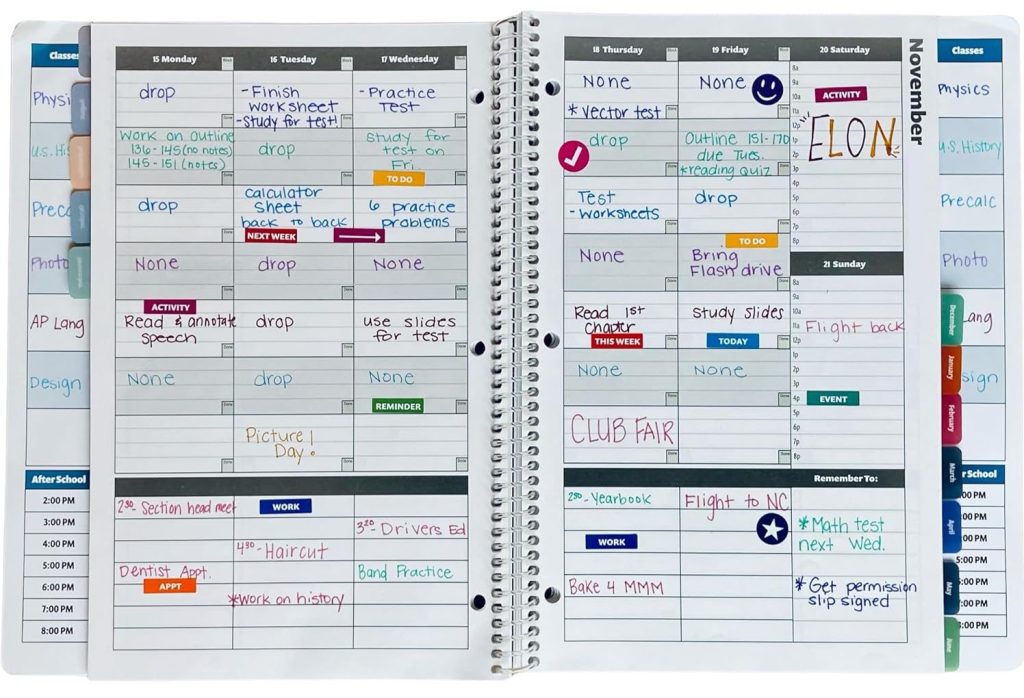 Classes
Physi
U.S. His
Prec
Photo
AP Lang
Design
After School
2:00 PM
3:00 PM
4:00 PM
5:00 PM
6:00 PM
7:00 PM
8:00 PM
15 Monday
16 Tuesday
17 Wednesday
drop
-Finish
worksheet
-Study for test!
-Practice
Test
Work on Outline
136-145(no notes)
145-151 (notes)
drop
Study for
test on
Fri
TO DO
drop
calculator
sheet
back to back
6 practice
problems
NEXT WEEK
None
drop
None
ACTIVITY
Read & annotate
speech
drop
use slides
for test
None
drop
None
REMINDER
Picture!
Day!
2:30- Section head meet
WORK
3:20- Drivers Ed
4:30-Haircut
Dentist Appt.
APPT
Band Practice
*Work on history
18 Thursday
19 Friday
20 Saturday
November
None
* Vector test
None
8a
9a
10a
ACTIVITY
11a
12p
ELON
drop
Outline 151-170
due Tues.
*reading quiz
2p
3p
4p
5p
6p
7p
8p
Test
-Worksheets
drop
TO DO
None
Bring
Flash drive
21 Sunday
8a
9a
10a
11a
Flight back
12p
1p
2p
3p
4p
EVENT
5p
6p
7p
8p
Read 1st
Chapter
THIS WEEK
study slides
TODAY
None
None
CLUB FAIR
Remember To:
2:30-Yearbook
Flight to NC
*Math test
next Wed.
WORK
Bake 4 MMM
*Get permission
slip signed
Classes
Physics
U.S. History
Precalc
Photo
Lang
sign
r School
:00 PM
:00 PM
:00 PM
:00 PM
:00 PM
:00 PM
:00 PM
December
January
February
March
April
May
June